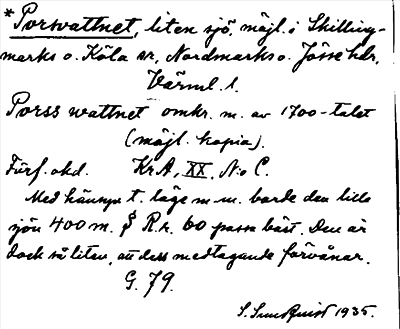 *Porsvattnet, liten sjö, möjl. i Skilling-
marks o. Köla snr, Nordmarks o. Jösse hdr,
Värml. l.
Porss wattnet omkr. m. av 1700-talet
(möjl. kopia).
Förf. okd. KrA, XX, N:o C.
Med hänsyn t. läge m. m. borde den lilla
sjön 400 m. § R.r. 60 passa bäst. Den är
dock så liten, att dess medtagande förvånar.
G. 79.
S. Sundquist 1935.